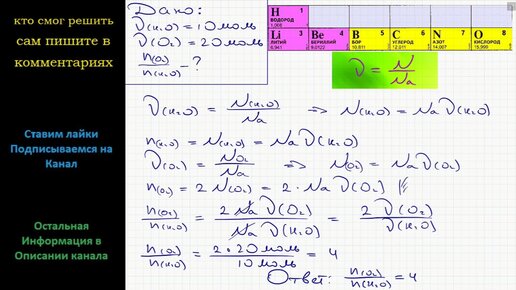 кто смог решить
сам пишите в
комментариях
Ставим лайки
Подписываемся на
Канал
Остальная
Информация в
Описании канала
Дано:
ν(H₂O) = 10 моль
ν(O₂) = 20 моль
n(O₂)/n(H₂O) - ?
H 1
ВОДОРОД
1,008
Li 3 Be 4 B 5 C 6 N 7 O 8
ЛИТИЙ БЕРИЛЛИЙ БОР УГЛЕРОД АЗОТ КИСЛОРОД
6,941 9,0122 10,811 12,011 14,007 15,999
ν = N/Na
ν(H₂O) = N(H₂O)/Na => N(H₂O) = Na ν(H₂O)
n(H₂O) = N(H₂O) = Na ν(H₂O)
ν(O₂) = N(O₂)/Na => N(O₂) = Na ν(O₂)
n(O₂) = 2 N(O₂) = 2 · Na ν(O₂)
n(O₂)/n(H₂O) = 2 Na ν(O₂)/Na ν(H₂O) = 2 ν(O₂)/ν(H₂O)
n(O₂)/n(H₂O) = 2·20 моль/10 моль = 4
Ответ: n(O₂)/n(H₂O) = 4